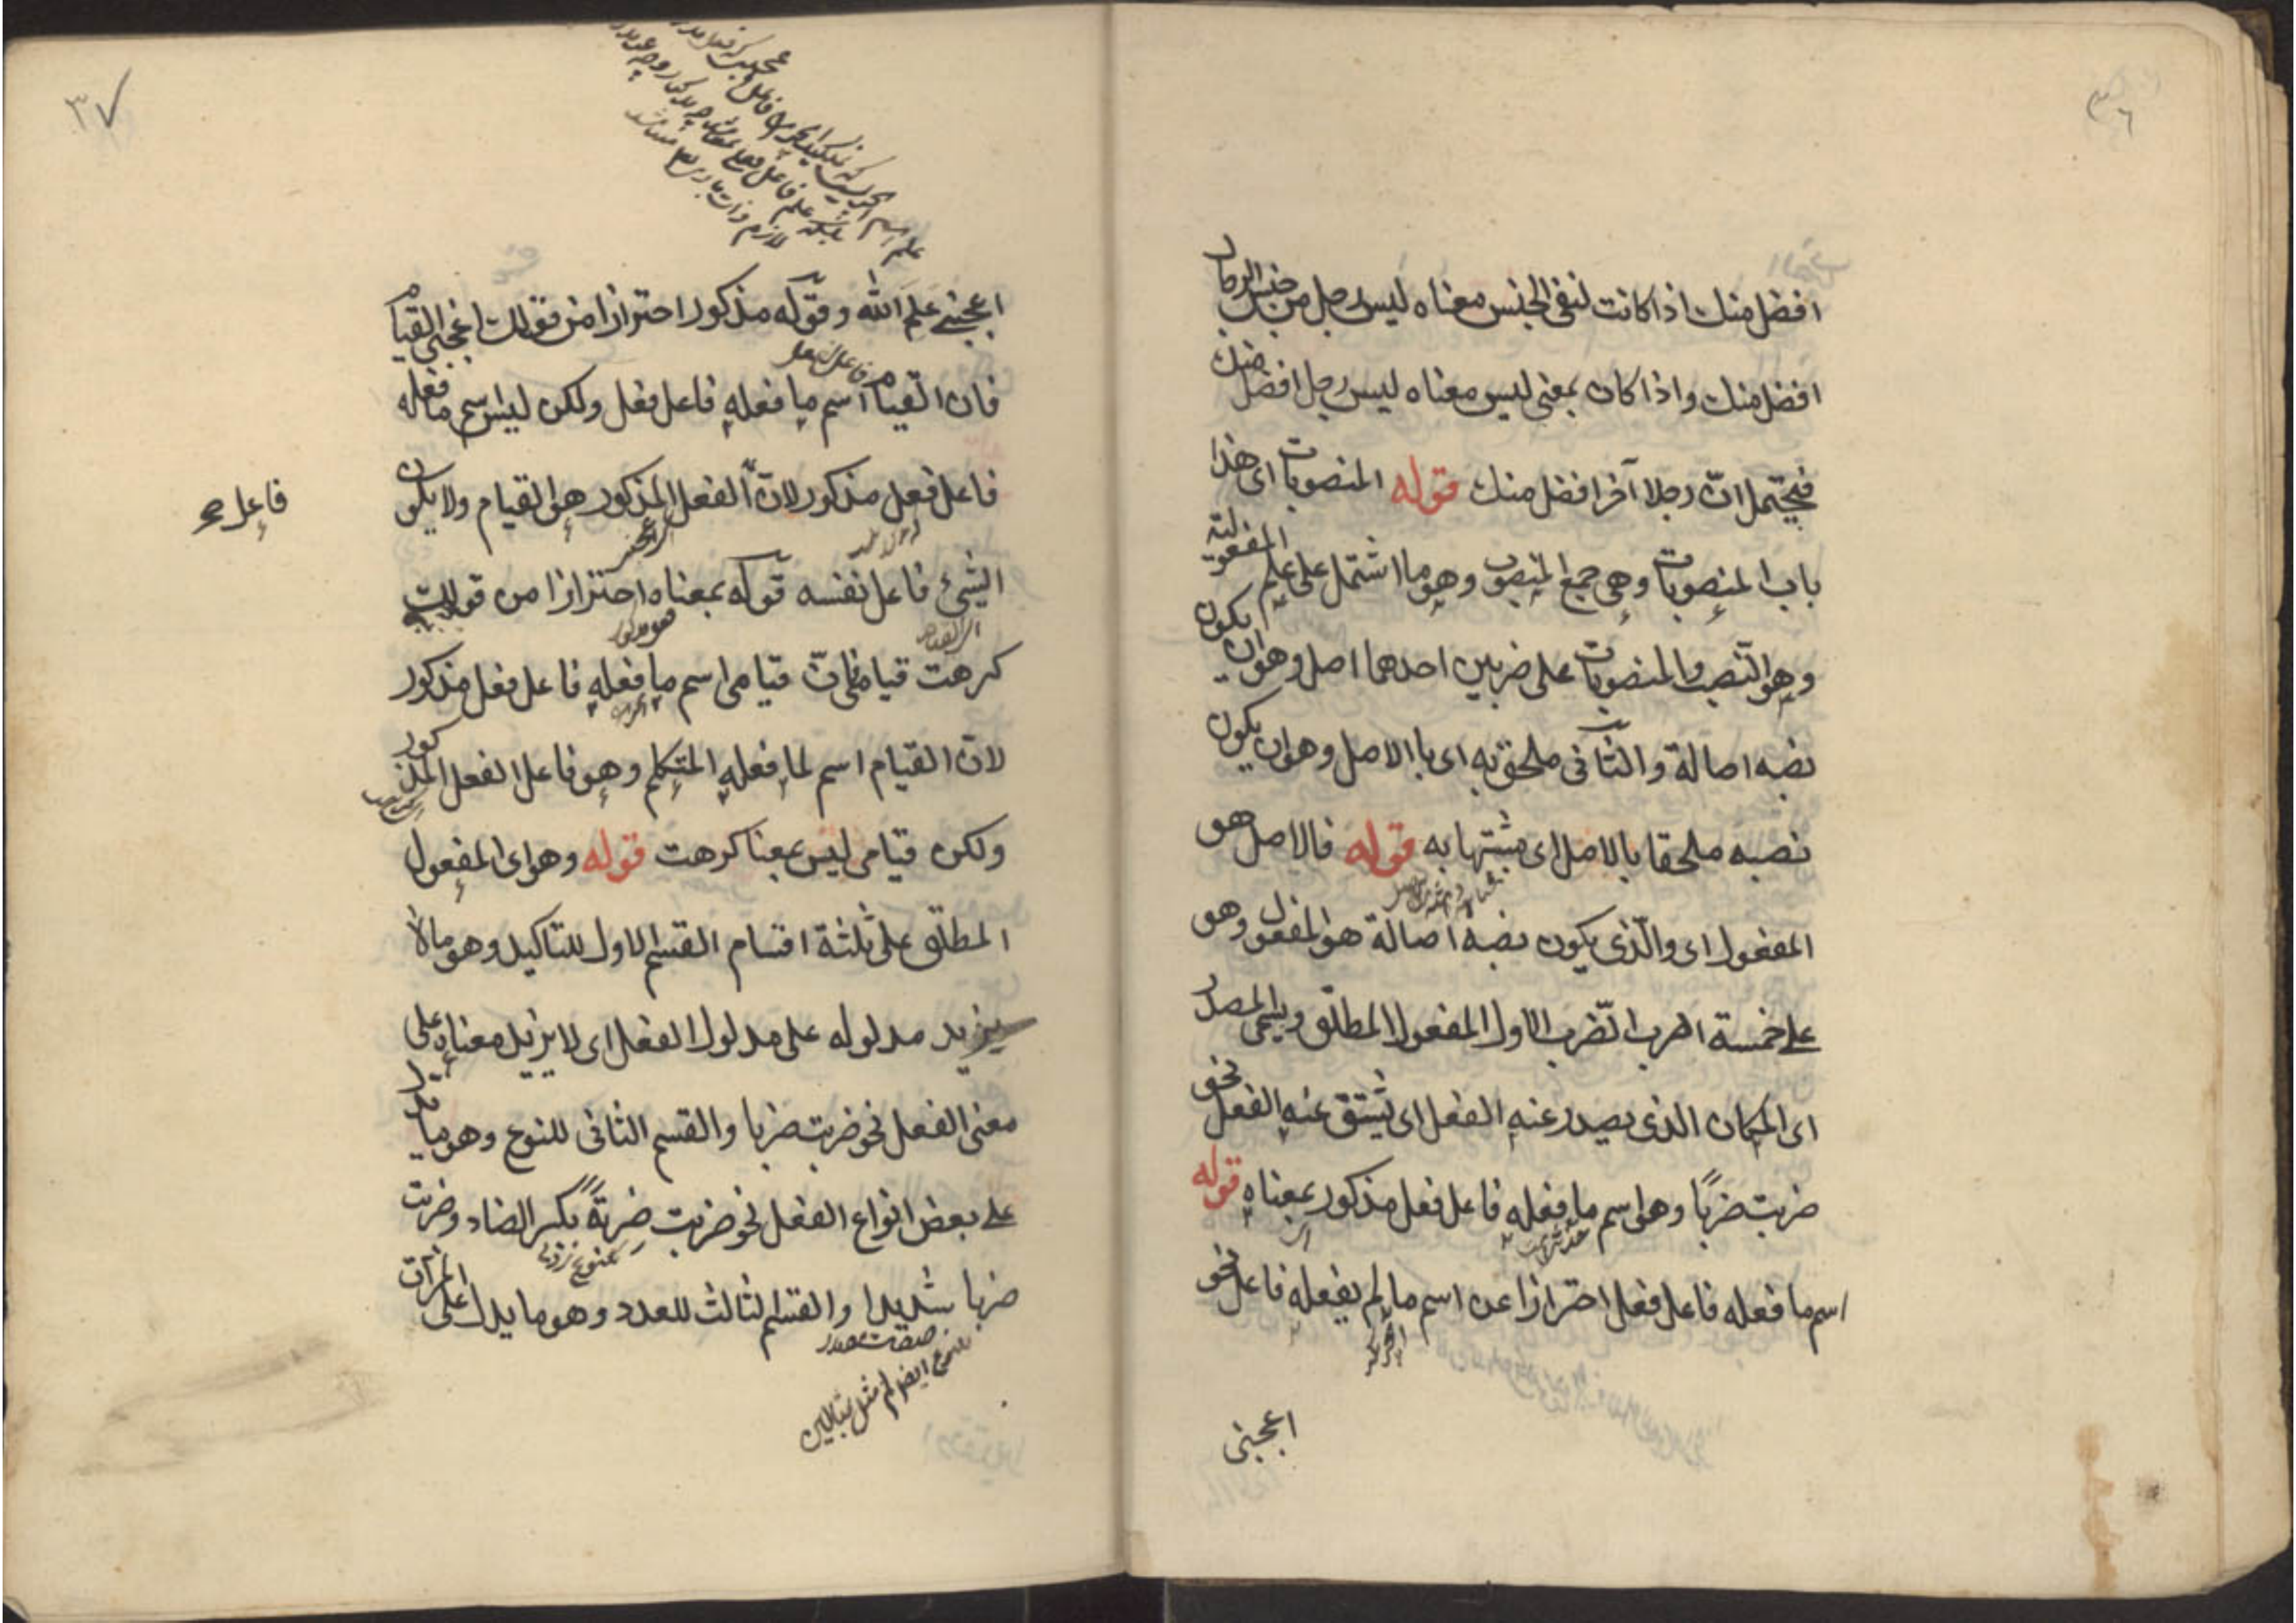 ٣٦
افضل منك اذا كانت لنفى الجنس معناه ليس رجل من جنس الرجال
افضل منك واذا كان بمعنى ليس معناه ليس رجل افضل منك
فيحتمل انّ رجلا آخر افضل منك قوله المنصوبات اى هذا
باب المنصوبات وهى جمع المنصوب وهو ما اشتمل على علم المفعولية
وهو النّصب والمنصوبات على ضربين احدهما اصل وهو ان يكون
نصبه اصالة والثانى ملحق به اى باالاصل وهو ان يكون
نصبه ملحقا بالاصل اى مشبّها به قوله فالاصل هو
المفعول اى والّذى يكون نصبه اصالة هو المفعول وهو
على خمسة اضرب الضّرب الاول المفعول المطلق ويسمى المصدر
اى المكان الذى يصدر عنه الفعل اى يشتق عنه الفعل نحو
ضربت ضربًا وهو اسم ما فعله فاعل فعل مذكور بمعناه قوله
اسم ما فعله فاعل فعل احترازا عن اسم ما لم يفعله فاعل نحو
اعجبنى
٣٧
اعجبنى علم الله وقوله مذكور احترازا من قولك اعجبنى القيام
فان القيام اسم ما فعله فاعل فعل ولكن ليس اسم ما فعله
فاعل فعل مذكور لانّ الفعل المذكور هو القيام ولا يكون
فاعل صح
الشىء فاعل نفسه قوله بمعناه احترازا من قولك
كرهت قيامى فانّ قيامى اسم ما فعله فاعل فعل مذكور
لان القيام اسم لما فعله المتكلم وهو فاعل الفعل المذكور
ولكن قيامى ليس بمعنا كرهت قوله وهو اى المفعول
المطلق على ثلثة اقسام القسم الاول للتاكيد وهو ما لا
يزيد مدلوله على مدلول الفعل اى لا يزيد معناه على
معنى الفعل نحو ضربت ضربا والقسم الثانى للنوع وهو ما يدل
على بعض انواع الفعل نحو ضربت ضِربةً بكسر الضاد وضربت
ضربا شديدا والقسم الثالث للعدد وهو ما يدل على المرّات
صفت مصدر